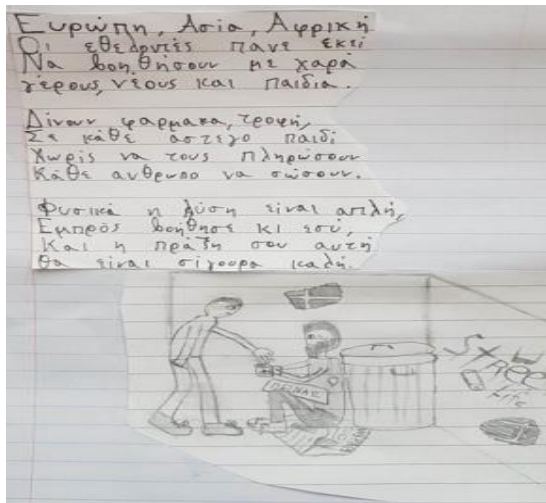 Ευρώπη, Ασία, Αφρική
Οι εθελοντές πάνε εκεί
Να βοηθήσουν με χαρά
γέρους, νέους και παιδιά.
Δίνουν φάρμακα, τροφή,
Σε κάθε άστεγο παιδί
Χωρίς να τους πληρώσουν
Κάθε άνθρωπο να σώσουν.
Φυσικά η λύση είναι απλή,
Εμπρός βοήθησε κι εσύ,
Και η πράξη σου αυτή
θα είναι σίγουρα καλή.
ΠΕΙΝΑΩ